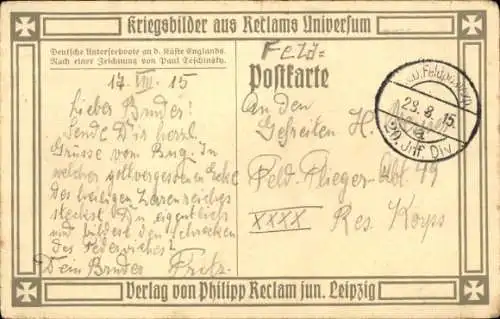 Kriegsbilder aus Reclams Universum
Deutsche Unterseeboote an d. Küste Englands.
Nach einer Zeichnung von Paul Teschinsky.
Feld=
Postkarte
17. VIII. 15
Lieber Bruder!
Sende Dir herzl.
Grüsse vom Bug. In
welcher gottvergessenen Ecke
des heiligen Zarenreiches
steckst Du eigentlich
und bildest den Schrecken
des Federviehes?
Dein Bruder Fritz.
An den
Gefreiten H.
Feld-Flieger-Abt. 49
XXXX Res. Korps
23.8.15.
a
Inf. Div.
Verlag von Philipp Reclam jun. Leipzig